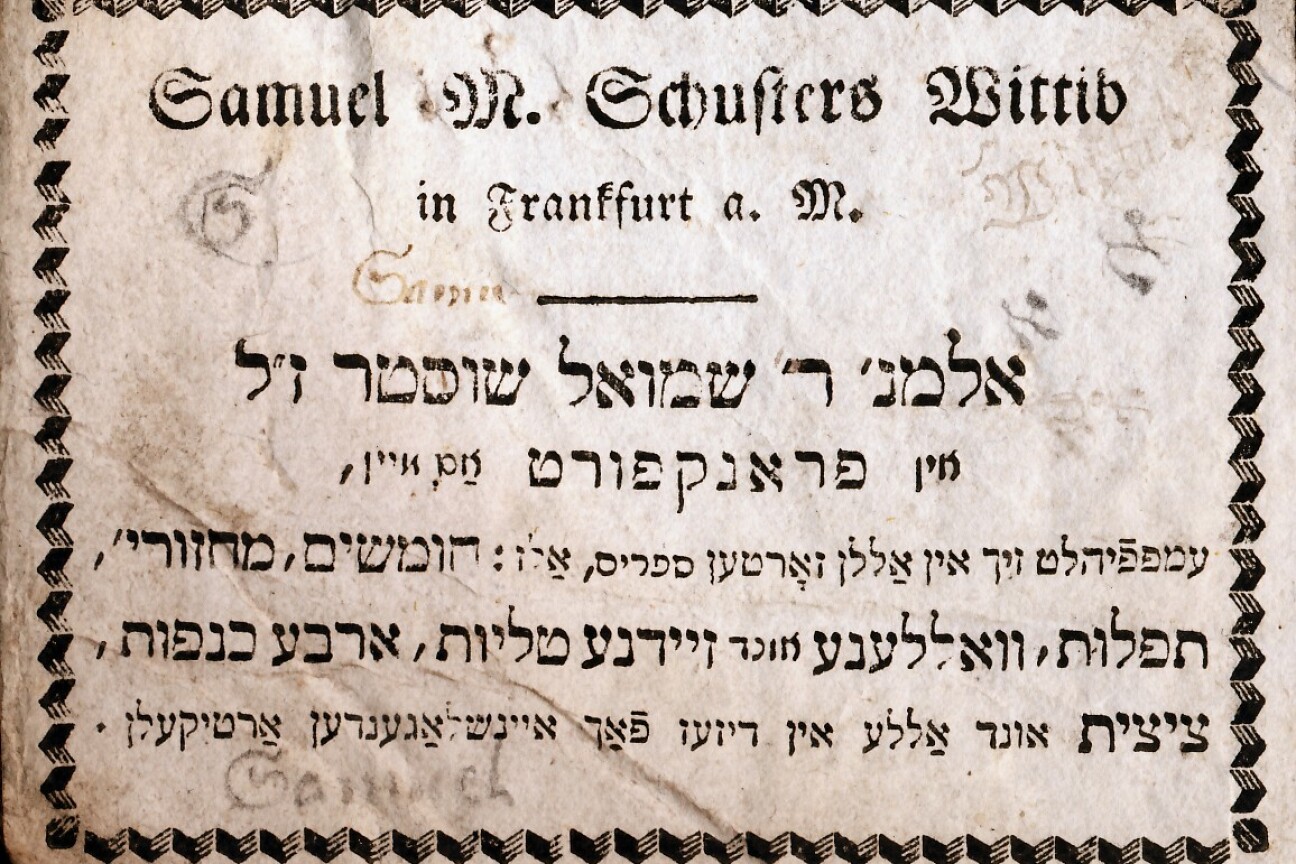 Samuel M. Schusters Wittib
in Frankfurt a. M.
אלמנ׳ ר׳ שמואל שוסטר ז״ל
אין פראנקפורט אַם מיין,
עמפפֿיהלט זיך אין אַללן זאָרטען ספרים, אַלז: חומשים, מחזורי׳,
תפלות, וואללענע אונד זיידנע טליות, ארבע כנפות,
ציצית אונד אַללע אין דיזעז פֿאַך איינשלאַגענדען אַרטיקעלן.
Samuel